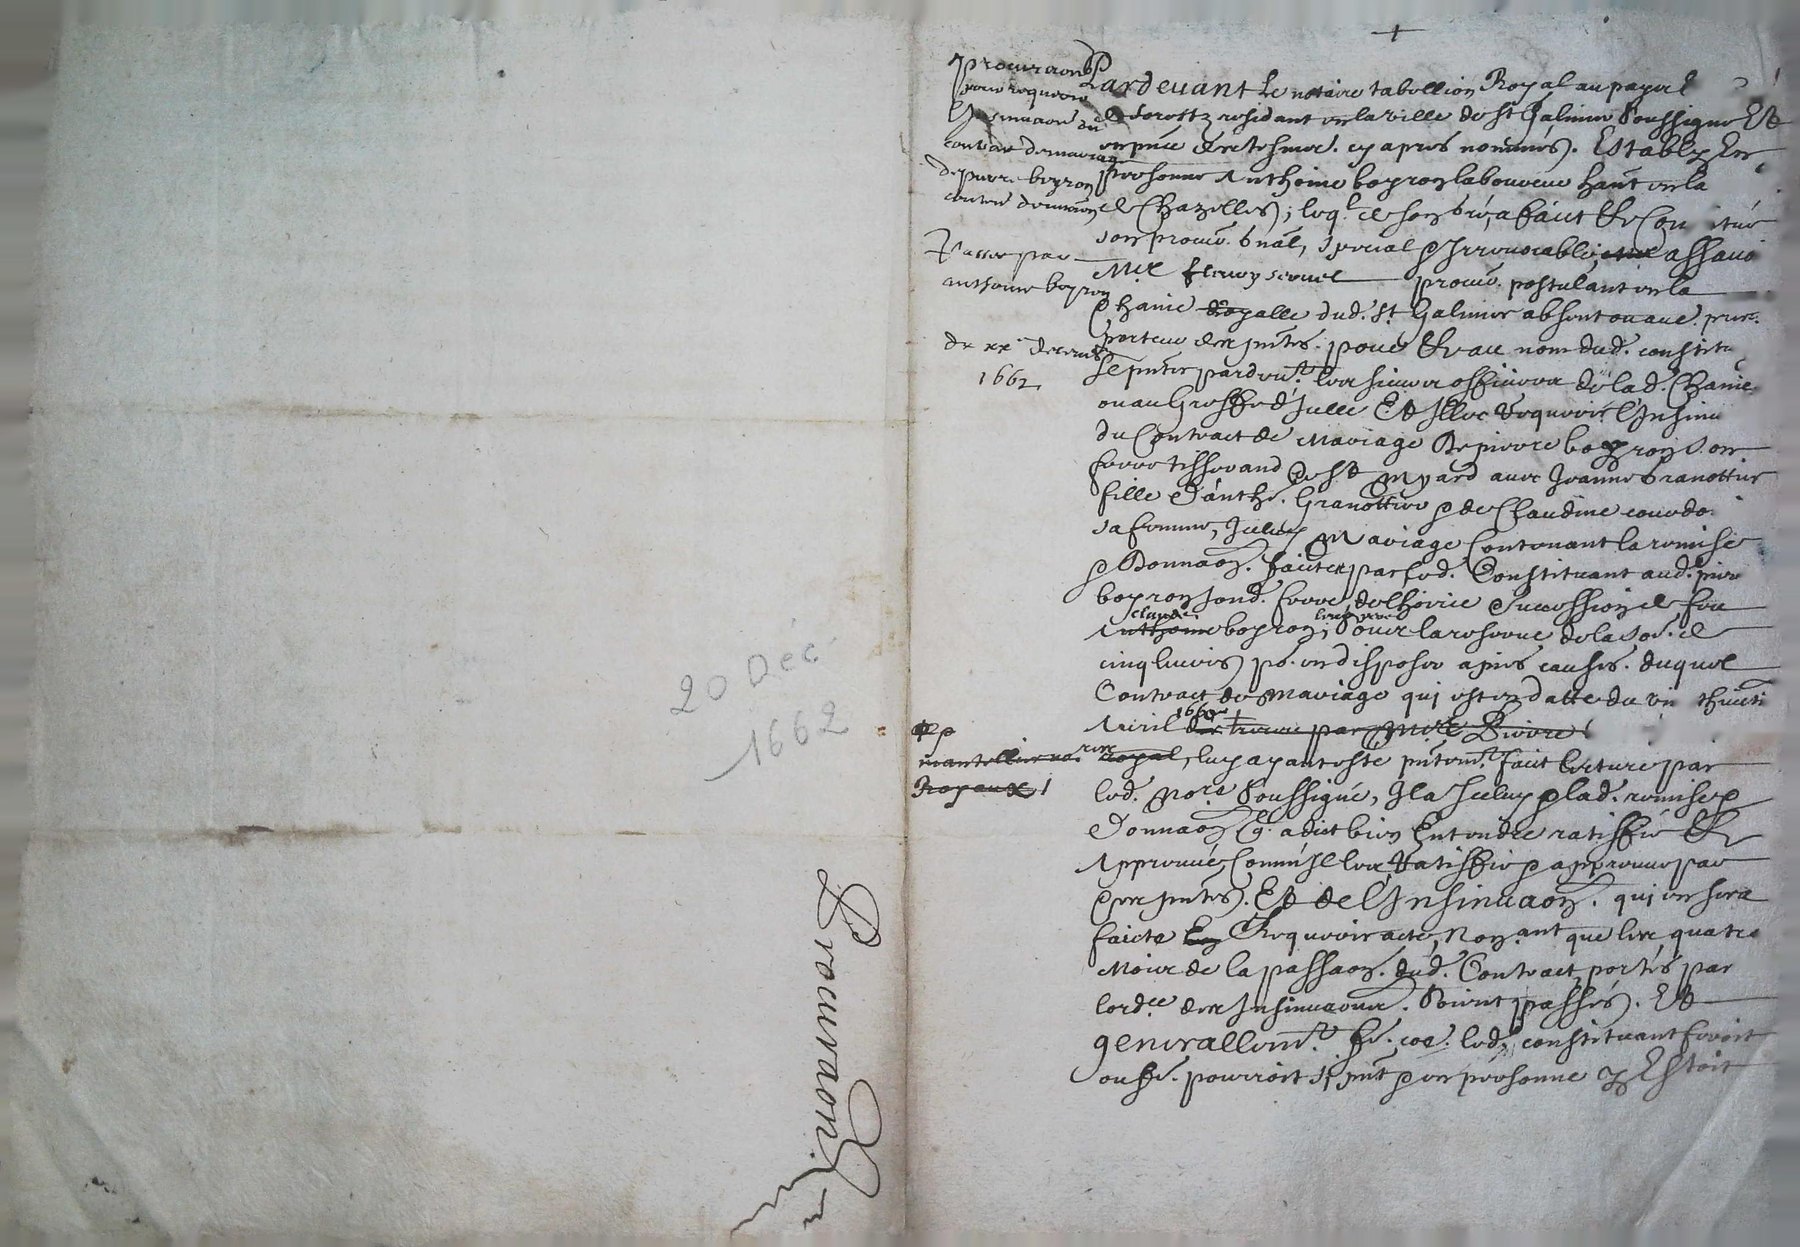 procuraon
pour requerir
Insinuaon du
contrat de mariage
de pierre boyron
Passee par
anthoine boyron
du xxe decemb
1662
Pardeuant Le notaire tabellion Royal au payis
de forestz residant en la ville de st Galmier soussigne Et
cy apres nommés. Estably En
personne Anthoine boyron laboureur
de Chazelles, leql de son gré, a faict & Constitué
son procur. gnal, special & Irreuocable, assauoir
procur. postulant en la
Chanie Royalle dud. st Galmier absent
porteur des pntes. pour & au nom dud. constitu
Se pnter pardeut. les sieurs officiers de la d. Chanie
ou au Greffe d'Icelle Et Illec Requerir l'Insinu
du Contract de Mariage De pierre boyron son
frere tisserand auec Jeanne Granottier
fille d'anthe. Granottier & de Claudine
sa femme, Iceluy Mariage Contenant la remise
& Donnaon. faicte par led. Constituant aud. pierre
boyron sond. frere, de l'hoirie & succession de feu
claude
Anthoine boyron, soubz la reserue de la so. de
cinq liures po. en disposer a ses causes. duquel
Contract de mariage qui est en datte du
1660
Auril par
Royaux
royal, luy ayant esté faict lecture par
led. nore soussigné, Il a Iceluy & lad. remise &
Donnaon q. a dict bien Entendre ratiffié &
Approuué, Comme Il les Ratiffie & approuue par
ces pntes. Et de l'Insinuaon. qui en sera
faicte En Requerir acte, Nonant que les quatre
Mois de la passaon. dud. Contract portés par
lordce des Insinuaons. soient passés. Et
generallemt. fe. coe. led. constituant feroit
ou fe. pourroit sy pnt & en personne y Estoit
20 Déc
1662
Procuraon